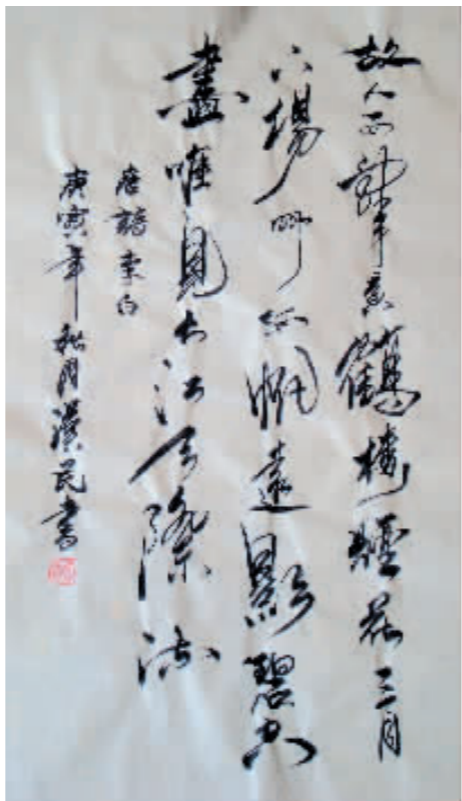 故人西辭黄鶴樓煙花三月
下揚州孤帆遠影碧空
盡唯見长江天際流
唐詩李白
庚寅年秋月漢民書